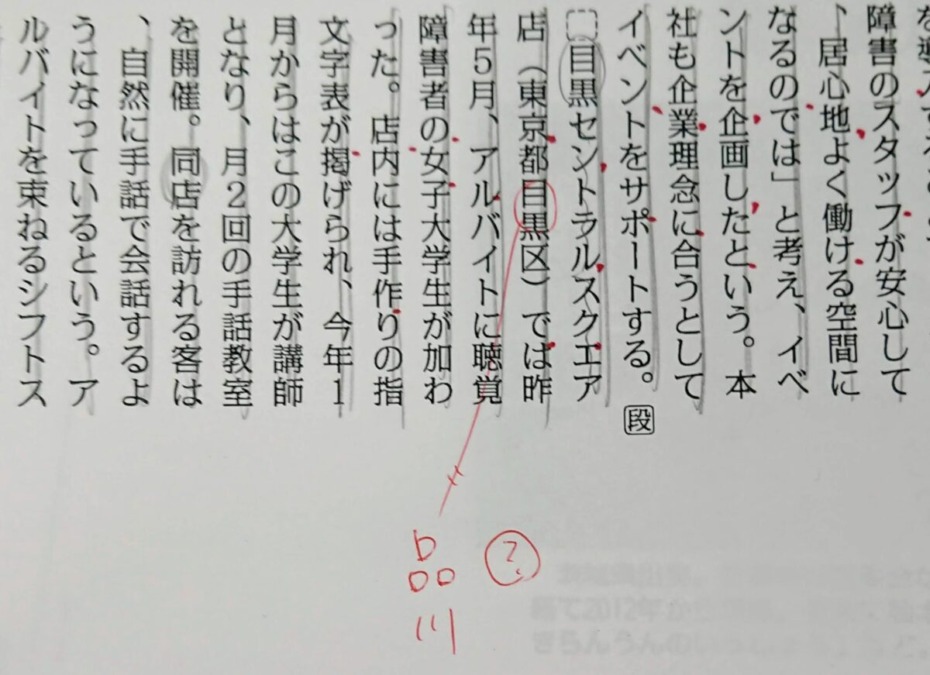 障害のスタッフが安心して
、居心地よく働ける空間に
なるのでは」と考え、イベ
ントを企画したという。本
社も企業理念に合うとして
イベントをサポートする。
段
目黒セントラルスクエア
店（東京都目黒区）では昨
年5月、アルバイトに聴覚
障害者の女子大学生が加わ
った。店内には手作りの指
文字表が掲げられ、今年1
月からはこの大学生が講師
となり、月2回の手話教室
を開催。同店を訪れる客は
、自然に手話で会話するよ
うになっているという。ア
ルバイトを束ねるシフトス
品川
?